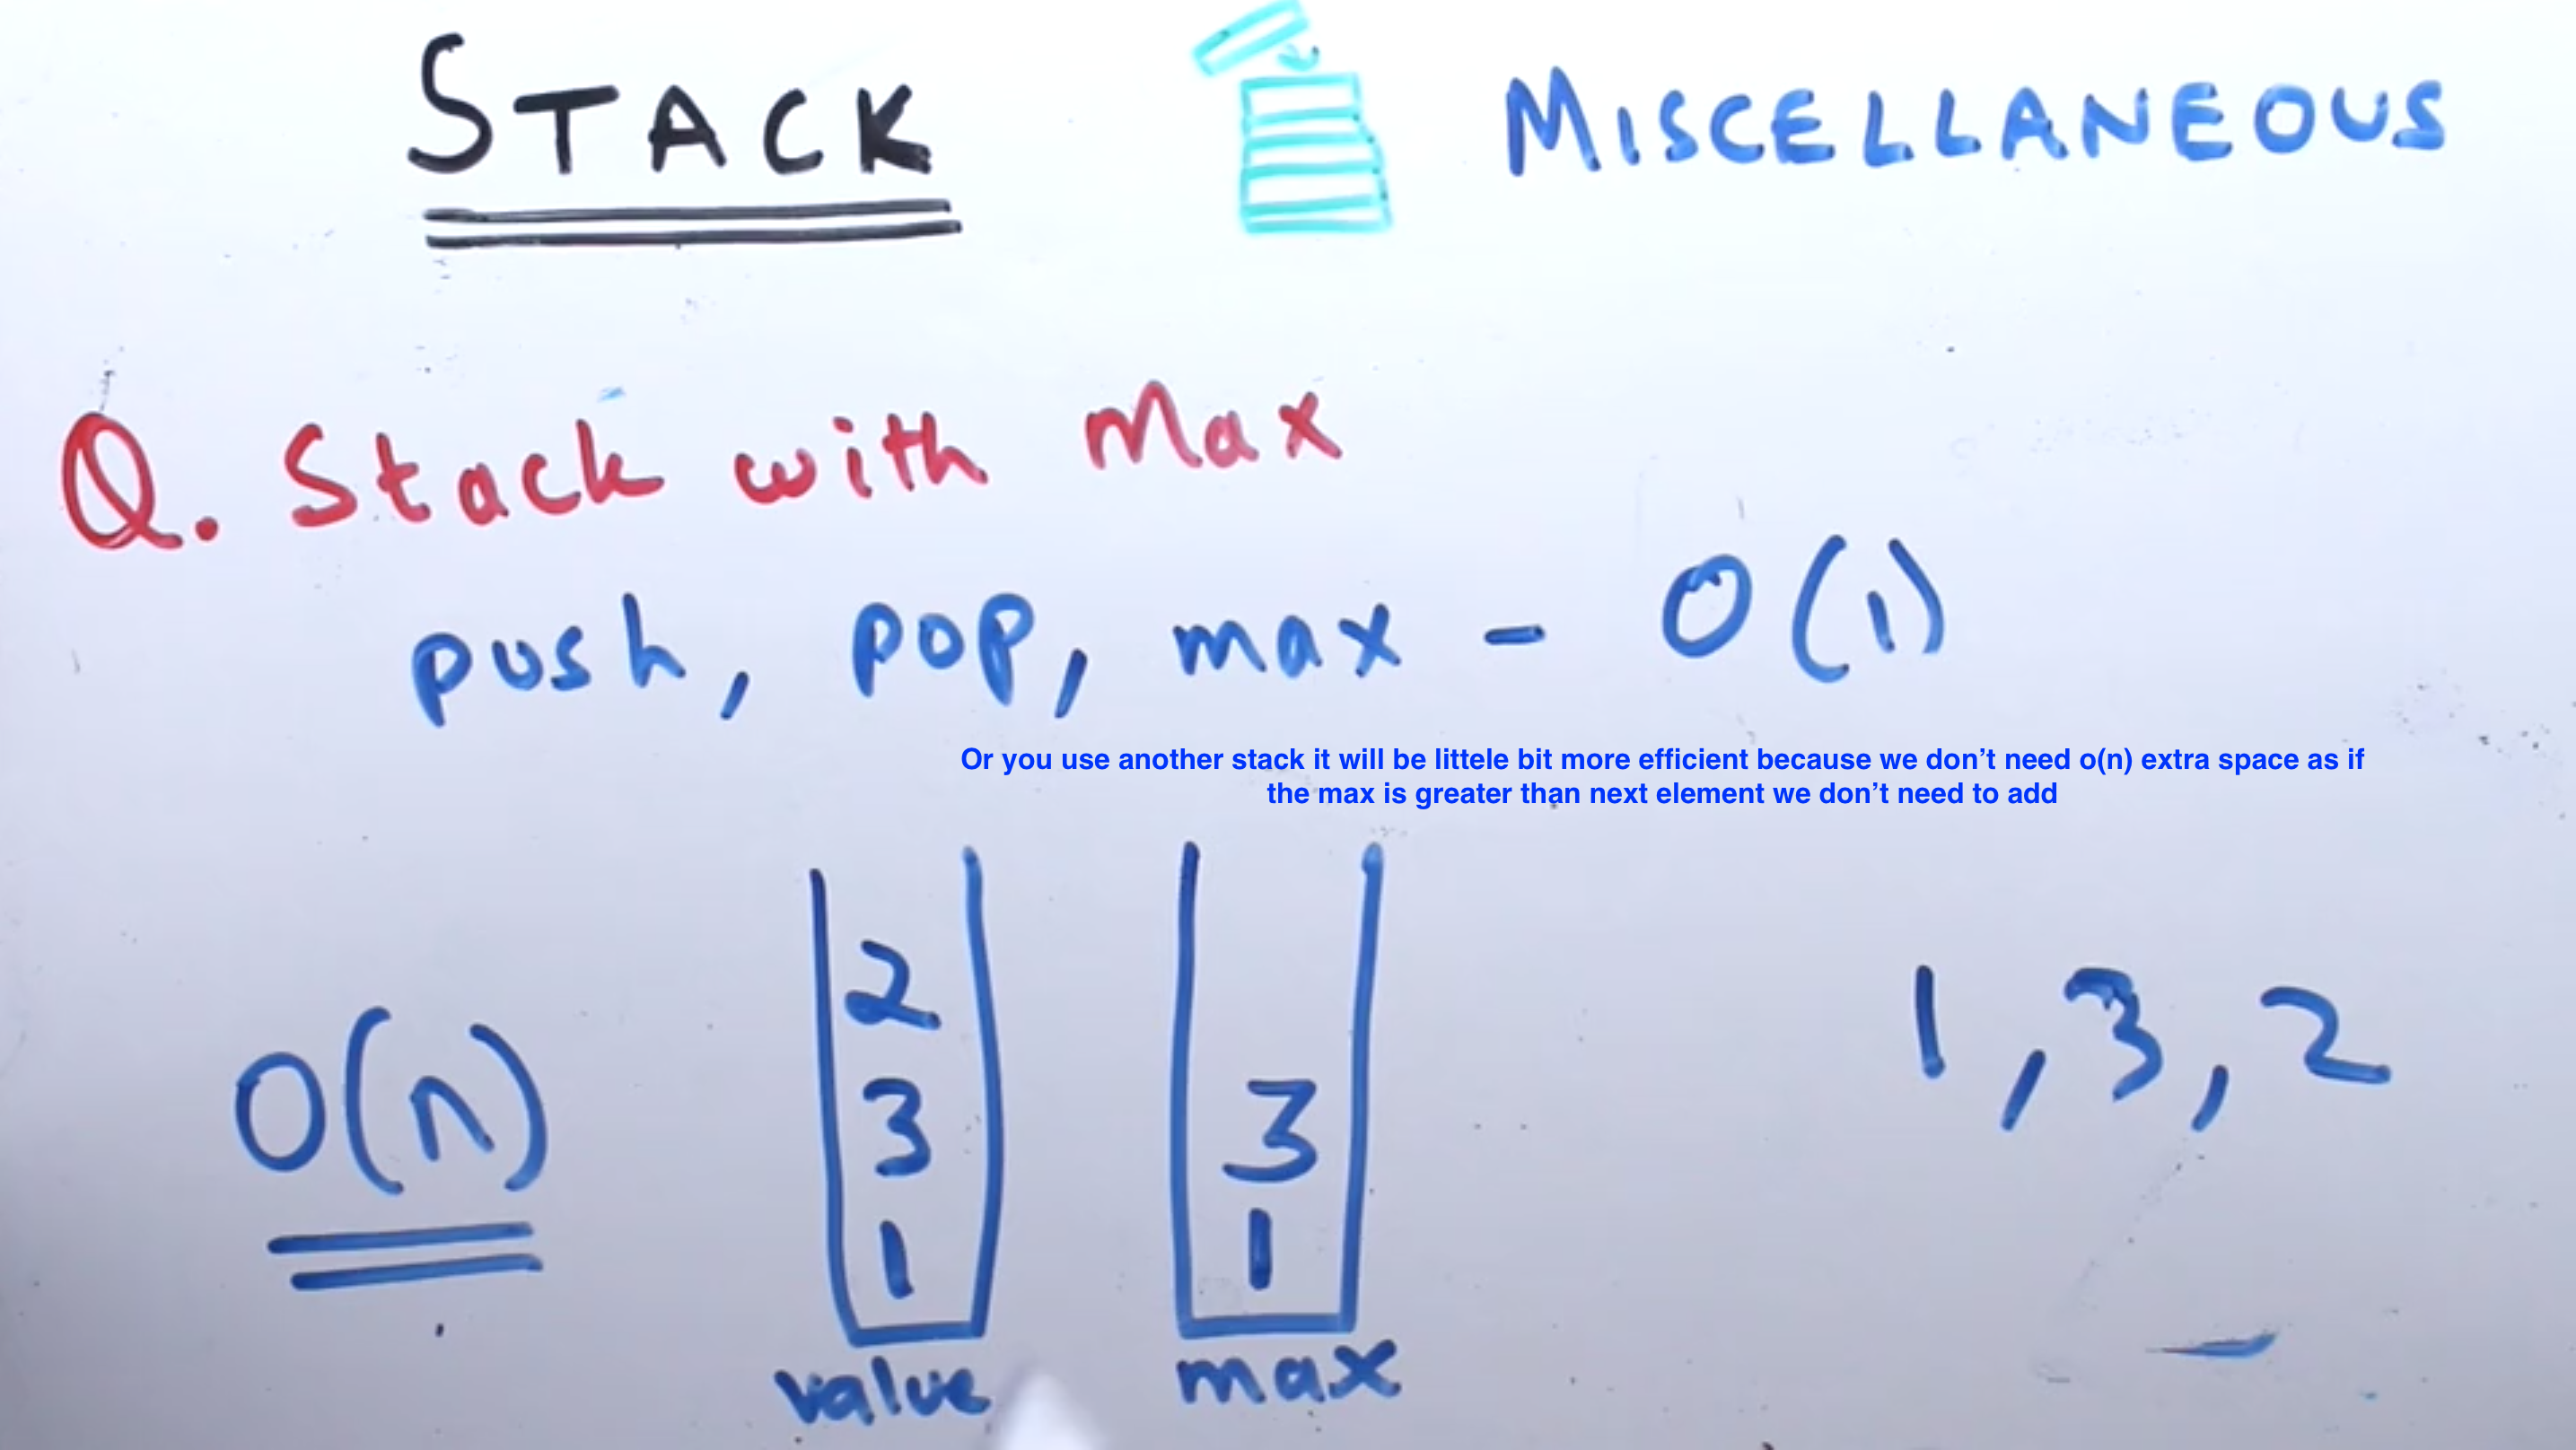 STACK MISCELLANEOUS
Q. Stack with Max
push, pop, max - O(1)
Or you use another stack it will be littele bit more efficient because we don’t need o(n) extra space as if
the max is greater than next element we don’t need to add
2
1, 3, 2
O(n) 3 3
1 1
value max